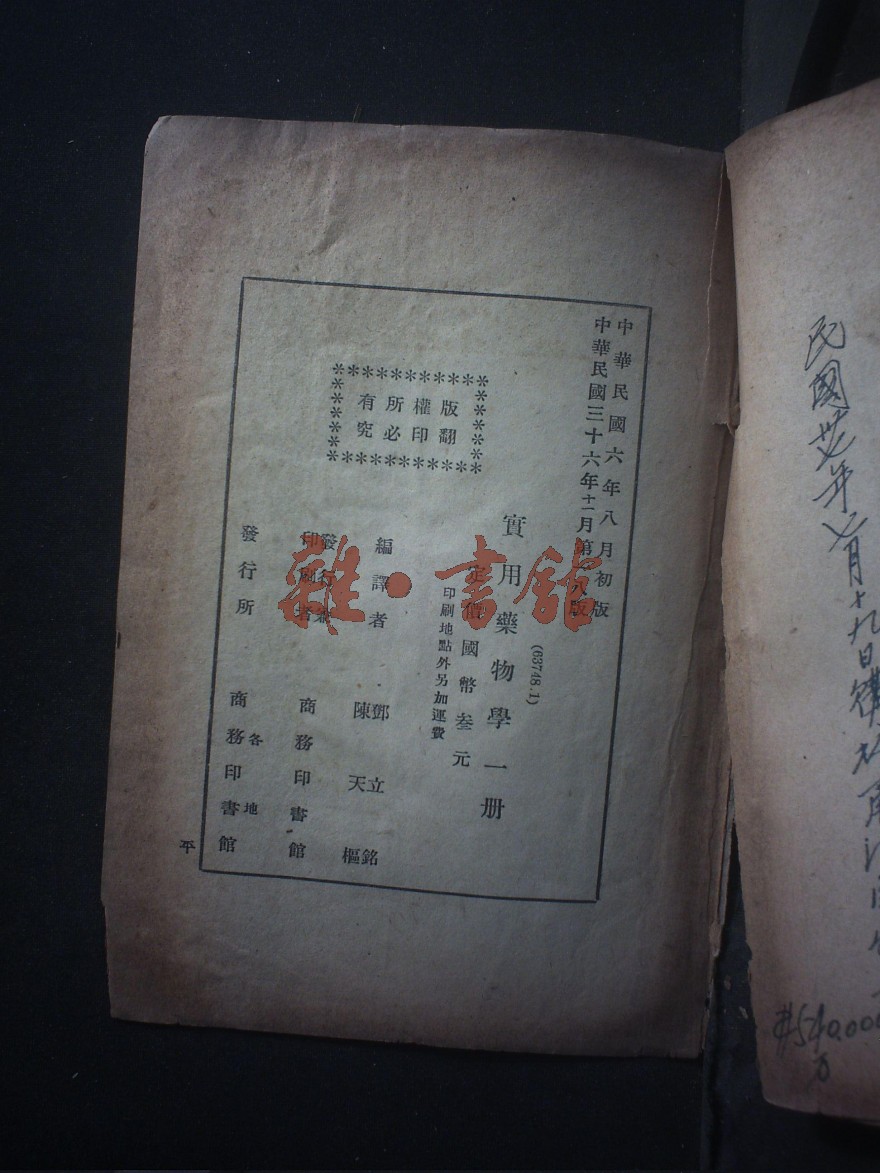 中華民國六年八月初版
中華民國三十六年十二月第八版
(63748.1)
實用藥物學一册
定價國幣叁元
印刷地點外另加運費
版權所有
翻印必究
編譯者
鄧立銘
陳天樞
發行兼
印刷者
商務印書館
發行所
各地
商務印書館
平
雜·書館
民國卅七年七月十九日購於